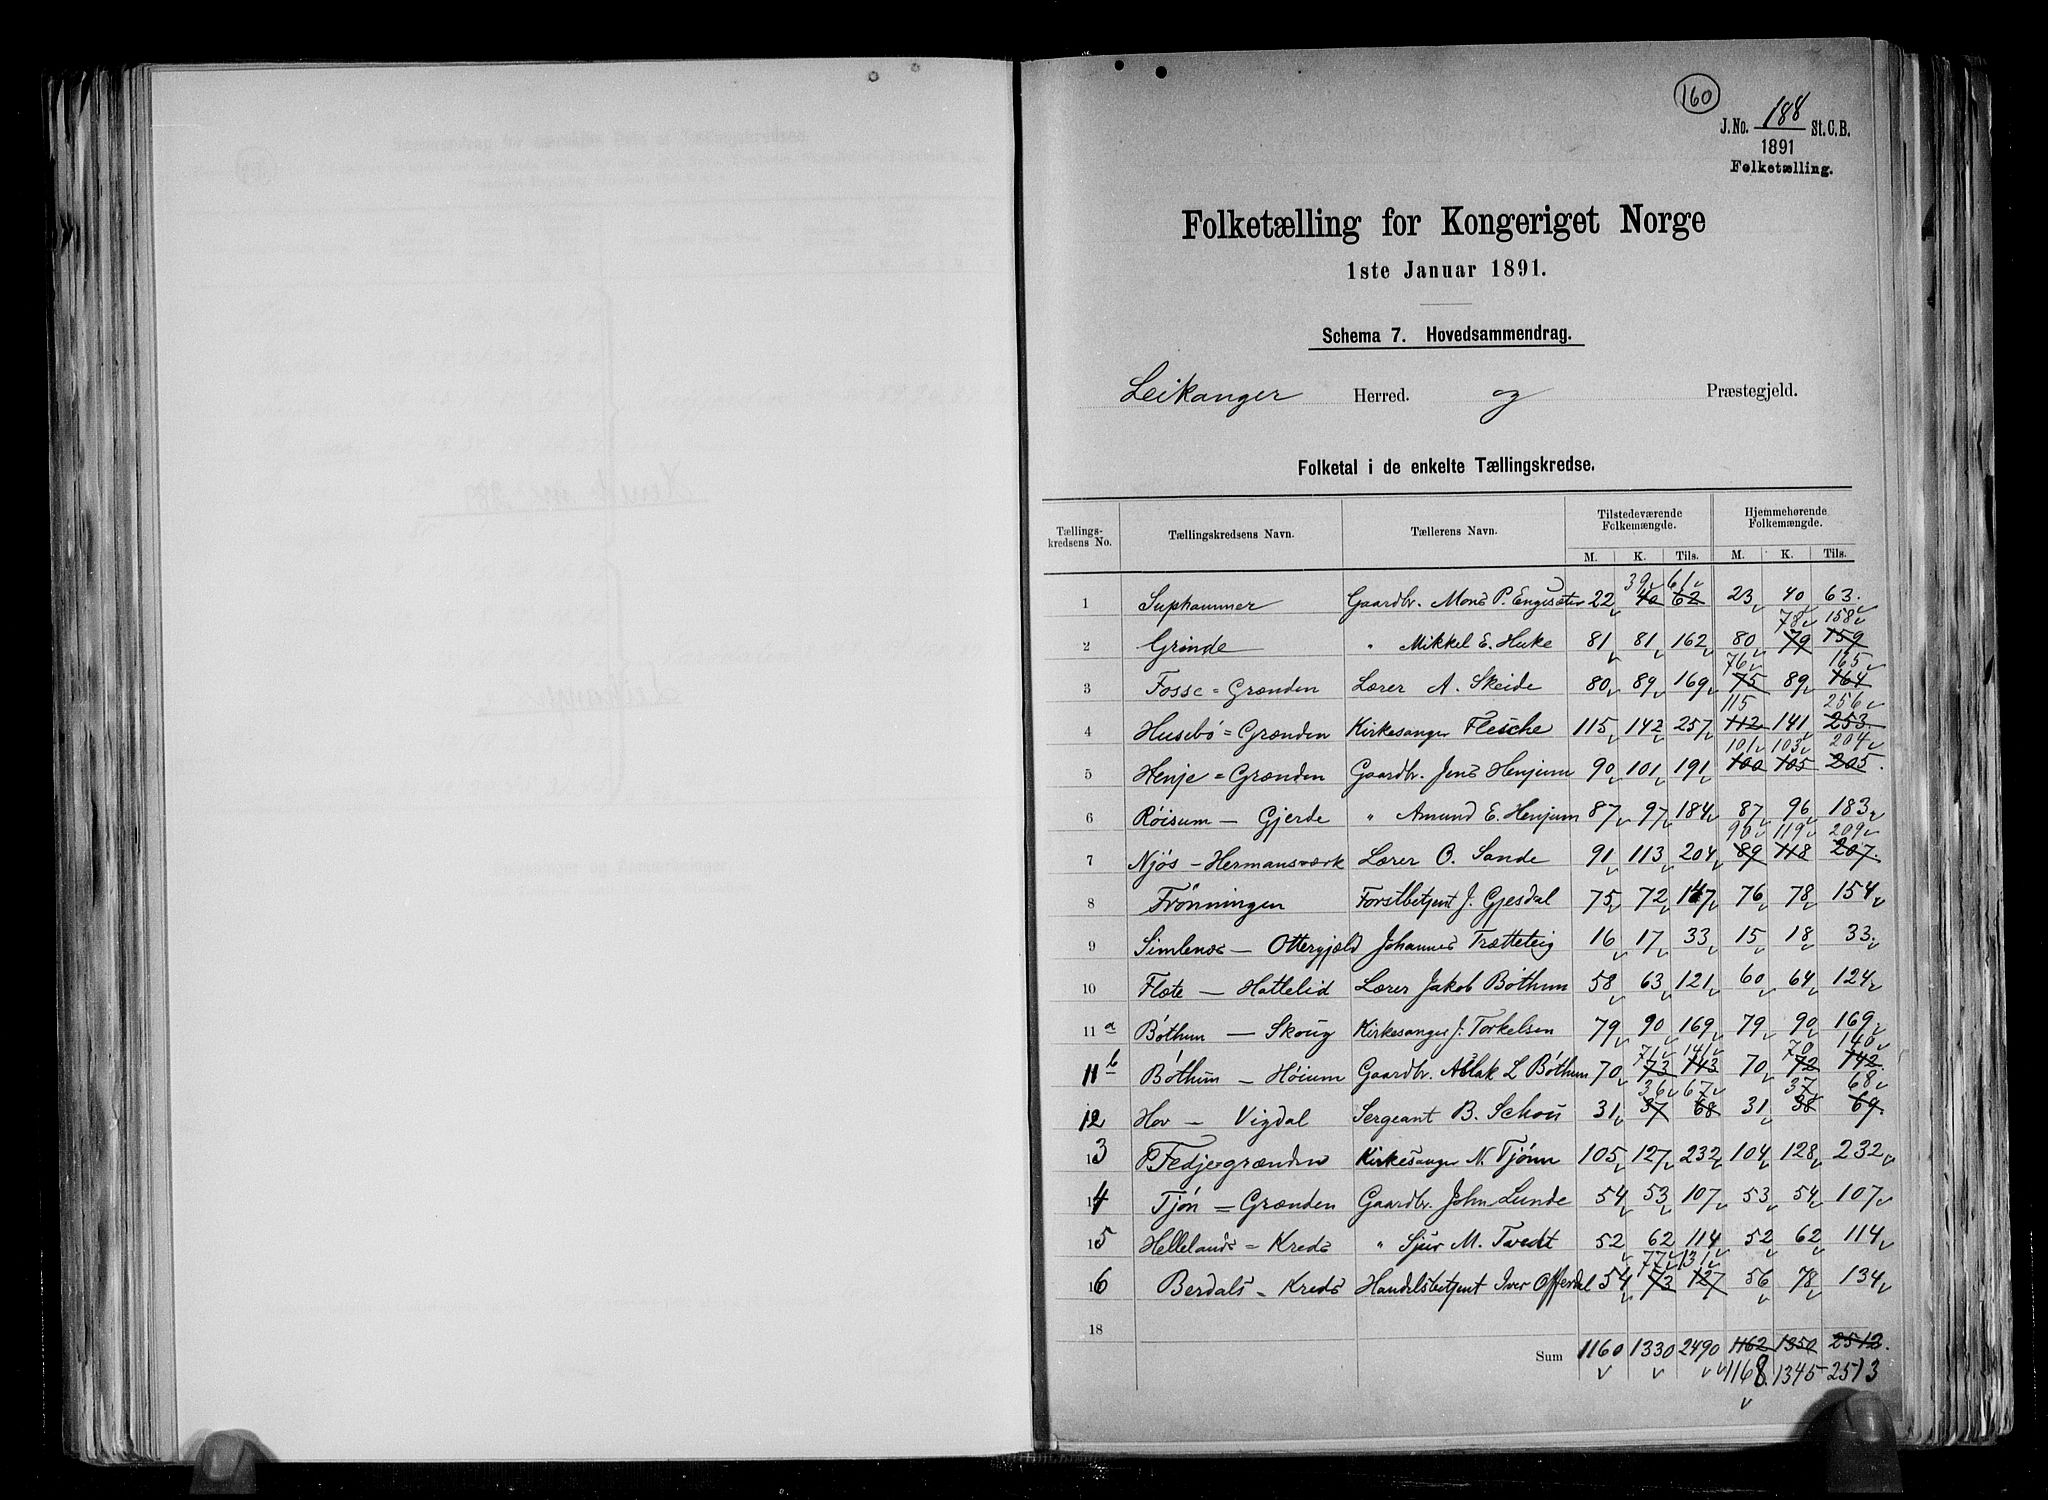 160
J. No. 188 St. C. B.
1891
Folketælling.
Folketælling for Kongeriget Norge
1ste Januar 1891.
Schema 7. Hovedsammendrag.
Leikanger Herred. og Præstegjeld.
Folketal i de enkelte Tællingskredse.
Tællings-kredsens No. Tællingskredsens Navn. Tællerens Navn. Tilstedeværende Folkemængde. Hjemmehørende Folkemængde.
M. K. Tils. M. K. Tils.
39 61
1 Suphammer Gaardbr. Mons P. 22 40 62 23 40 63.
78 158
2 Grinde " Mikkel E. Huke 81 81 162 80 79 159
76 165
3 Fosse = Grænden Lærer A. Skeide 80 89 169 75 89 164
115 256
4 Husebø = Grænden Kirkesanger Flesche 115 142 257 112 141 253.
101 103 204
5 Henje = Grænden Gaardbr. Jens Henjum 90 101 191 100 105 205.
6 Røisum — Gjerde " Amund E. Henjum 87 97 184 87 96 183
90 119 209
7 Njøs — Hermansværk Lærer O. Sande 91 113 204 89 118 207.
8 Frønningen Forstbetjent J. Gjesdal 75 72 147 76 78 154
9 Simlenæs — Ottergjæld Johannes Trætteteig 16 17 33 15 18 33.
10 Flete — Hattelid Lærer Jakob Bøthum 58 63 121 60 64 124
11 a Bøthum — Skoug Kirkesanger J. Torkelsen 79 90 169 79 90 169
71 141 70 140
11 b Bøthum — Høium Gaardbr. Aslak L Bøthum 70 73 143 70 72 142.
36 67 37 68
12 Hov — Vigdal Sergeant B. Schou 31 37 68 31 38 69.
13 Fedje=grænden Kirkesanger N. Tjønn 105 127 232 104 128 232
14 Tjøn = Grænden Gaardbr. John Lunde 54 53 107 53 54 107
15 Hellelands = Kreds " Sjur M. Tvedt 52 62 114 52 62 114
77 131
16 Berdals - Kreds Handelsbetjent Iver Offerdal 54 73 127 56 78 134
18
Sum 1160 1330 2490 1162 1350 2512.
1168. 1345 2513